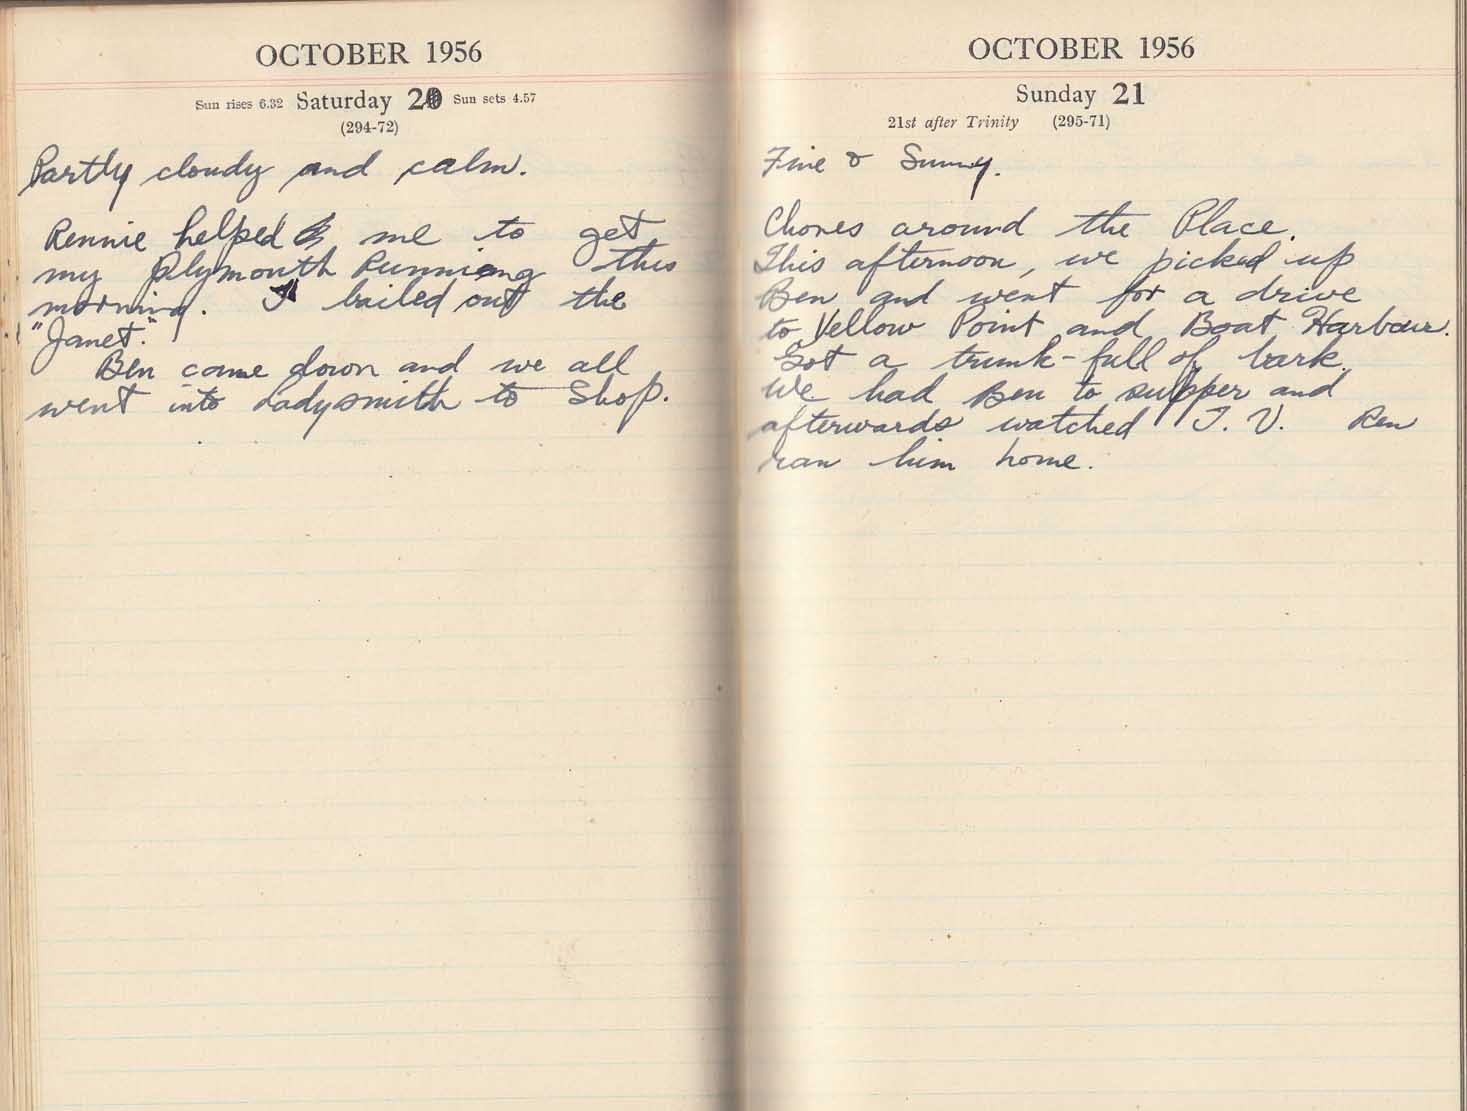 OCTOBER 1956
Sun rises 6.32 Saturday 20 Sun sets 4.57
(294-72)
Partly cloudy and calm.
Rennie helped me to get
my Plymouth Running this
morning. I bailed out the
"Janet."
Ben came down and we all
went into Ladysmith to Shop.
OCTOBER 1956
Sunday 21
21st after Trinity (295-71)
Fine & Sunny.
Chores around the Place.
This afternoon, we picked up
Ben and went for a drive
to Yellow Point and Boat Harbour.
Got a trunk-full of bark.
We had Ben to supper and
afterwards watched T. V. Ren
ran him home.